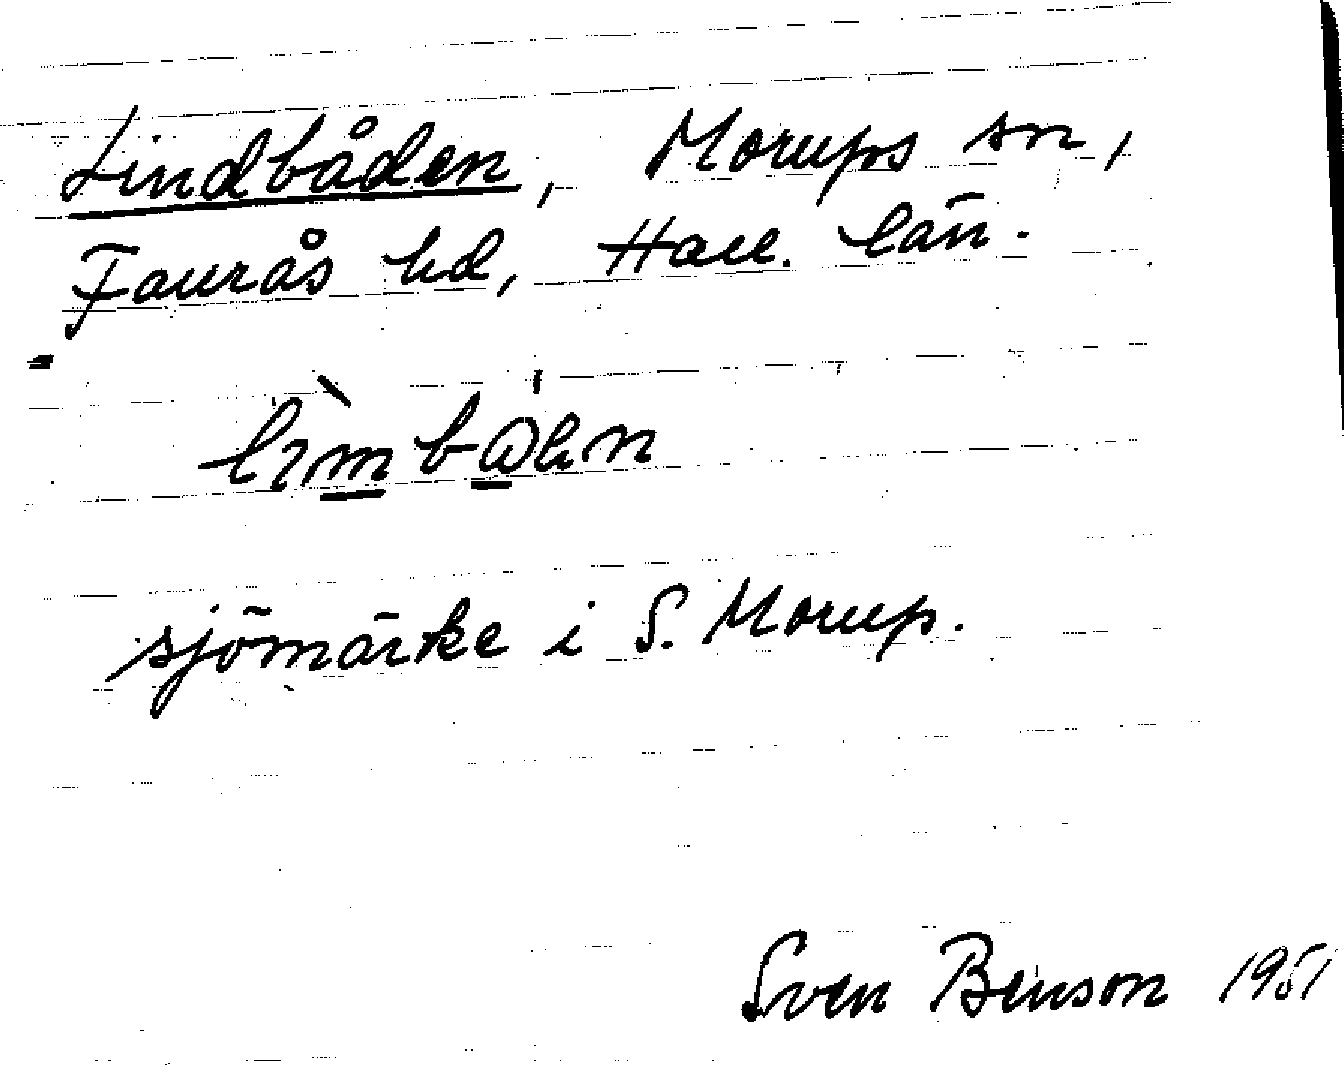 Lindbåden, Morups sn,
Faurås hd, Hall. län.
sjömärke i S. Morup.
Sven Benson 1951